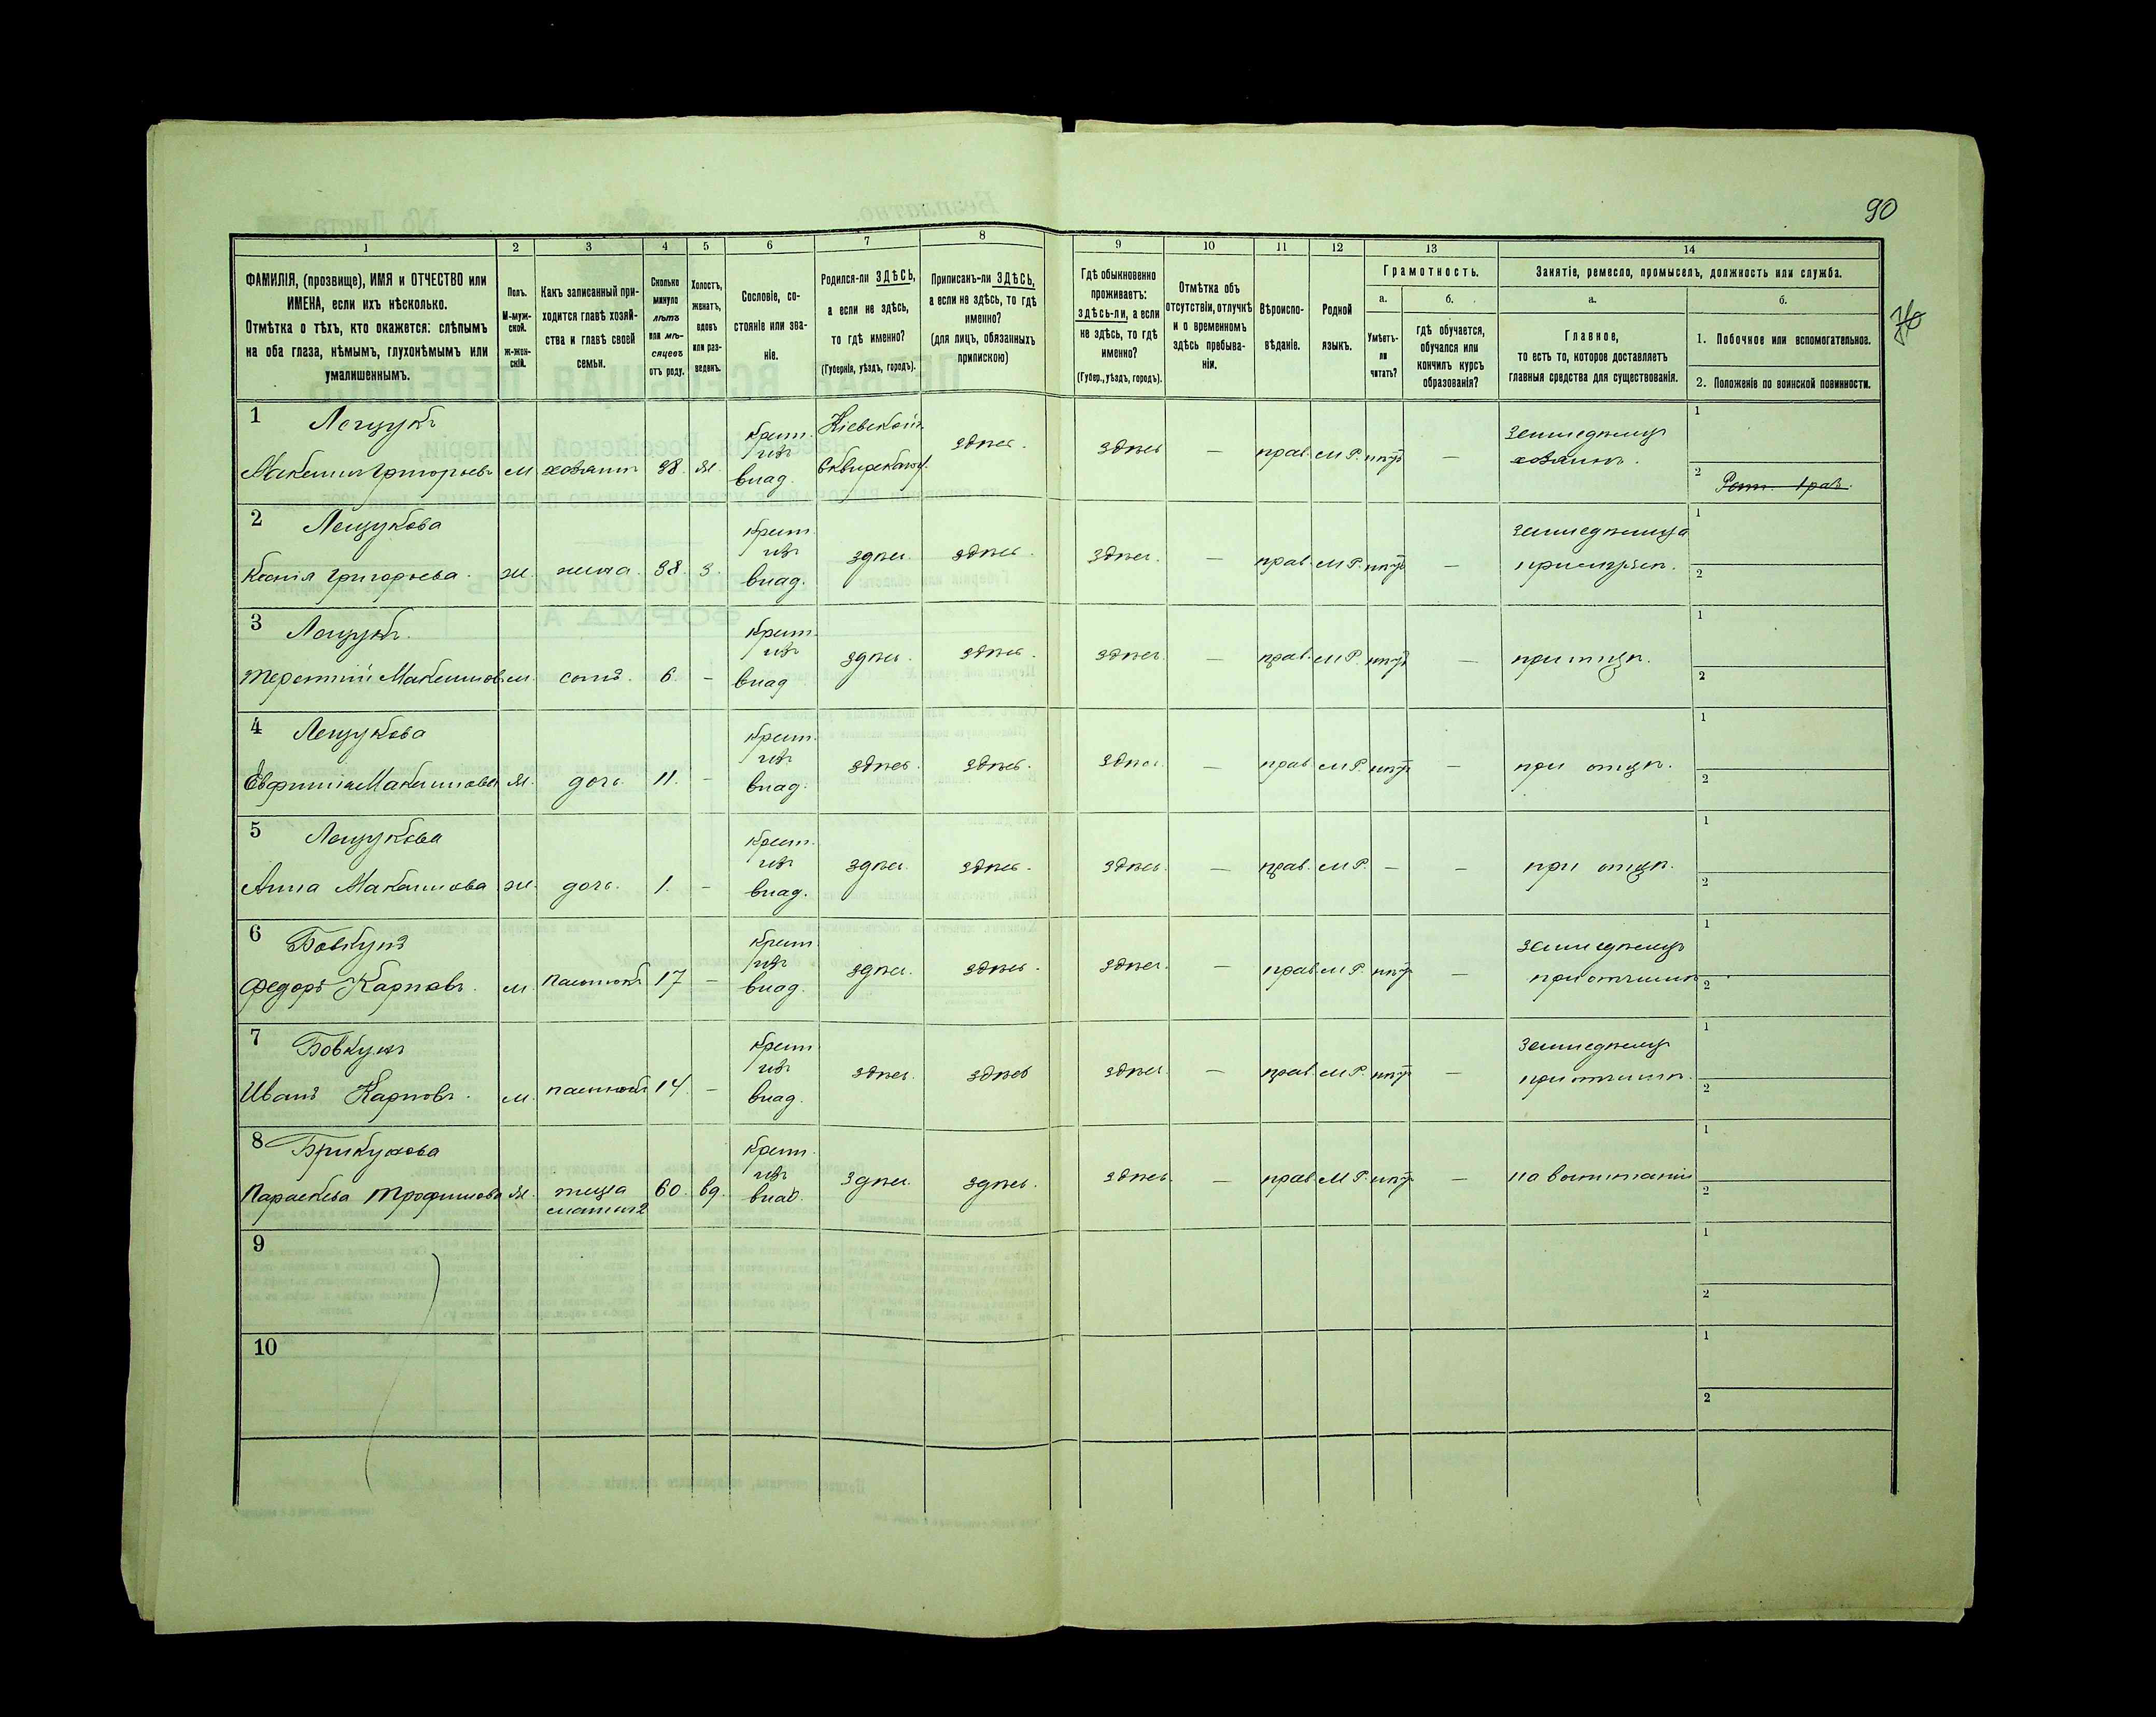 90
76
1 2 3 4 5 6 7 8 9 10 11 12 13 14
ФАМИЛІЯ, (прозвище), ИМЯ и ОТЧЕСТВО или ИМЕНА, если ихъ нѣсколько.
Отмѣтка о тѣхъ, кто окажется: слѣпымъ на оба глаза, нѣмымъ, глухонѣмымъ или умалишеннымъ.
Полъ. М-мужской. ж-женскій.
Какъ записанный приходится главѣ хозяйства и главѣ своей семьи.
Сколько минуло лѣтъ или мѣсяцевъ отъ роду.
Холостъ, женатъ, вдовъ или разведенъ.
Сословіе, состояніе или званіе.
Родился-ли ЗДѢСЬ, а если не здѣсь, то гдѣ именно?
(Губернія, уѣздъ, городъ).
Приписанъ-ли ЗДѢСЬ, а если не здѣсь, то гдѣ именно?
(для лицъ, обязанныхъ припискою)
Гдѣ обыкновенно проживаетъ: здѣсь-ли, а если не здѣсь, то гдѣ именно?
(Губер., уѣздъ, городъ).
Отмѣтка объ отсутствіи, отлучкѣ и о временномъ здѣсь пребываніи.
Вѣроисповѣданіе.
Родной языкъ.
Грамотность.
а. Умѣетъ-ли читать?
б. гдѣ обучается, обучался или кончилъ курсъ образованія?
Занятіе, ремесло, промыселъ, должность или служба.
а. Главное, то есть то, которое доставляетъ главныя средства для существованія.
б. 1. Побочное или вспомогательное.
2. Положеніе по воинской повинности.
1 Лещукъ крест. Кіевской земледѣлецъ 1
Максимъ Григорьевъ м. хозяинъ 38. ж. изъ влад. Сквирской у. здѣсь. здѣсь — прав. м. Р. нѣтъ — хозяинъ. 2
2 Лещукова крест. земледѣлица 1
Ксенія Григорьева. ж. жена. 38. з. изъ влад. здѣсь здѣсь. здѣсь. — прав. м. Р. нѣтъ — при мужѣ. 2
3 Лещукъ. крест. 1
Терентій Максимовъ м. сынъ. 6. — изъ влад здѣсь. здѣсь. здѣсь. — прав. м. Р. нѣтъ — при отцѣ. 2
4 Лещукова крест. 1
Евфимія Максимова ж. дочь. 11. — изъ влад. здѣсь. здѣсь. здѣсь. — прав м. Р. нѣтъ — при отцѣ. 2
5 Лещукова крест. 1
Анна Максимова ж. дочь. 1. — изъ влад. здѣсь. здѣсь. здѣсь. — прав. м. Р. — — при отцѣ. 2
6 Бовкунъ крест. земледѣлецъ 1
Федоръ Карповъ. м. пасынокъ 17 — изъ влад. здѣсь. здѣсь. здѣсь. — прав. м. Р. нѣтъ — при отчимѣ 2
7 Бовкунъ крест. земледѣлецъ 1
Иванъ Карповъ. м. пасынокъ 14. — изъ влад. здѣсь. здѣсь здѣсь. — прав. м. Р. нѣтъ — при отчимѣ. 2
8 крест. 1
Параскева Трофимова ж. теща 60. вд. изъ влад. здѣсь. здѣсь. здѣсь. — прав. м. Р. нѣтъ — 2
9 1
2
10 1
2